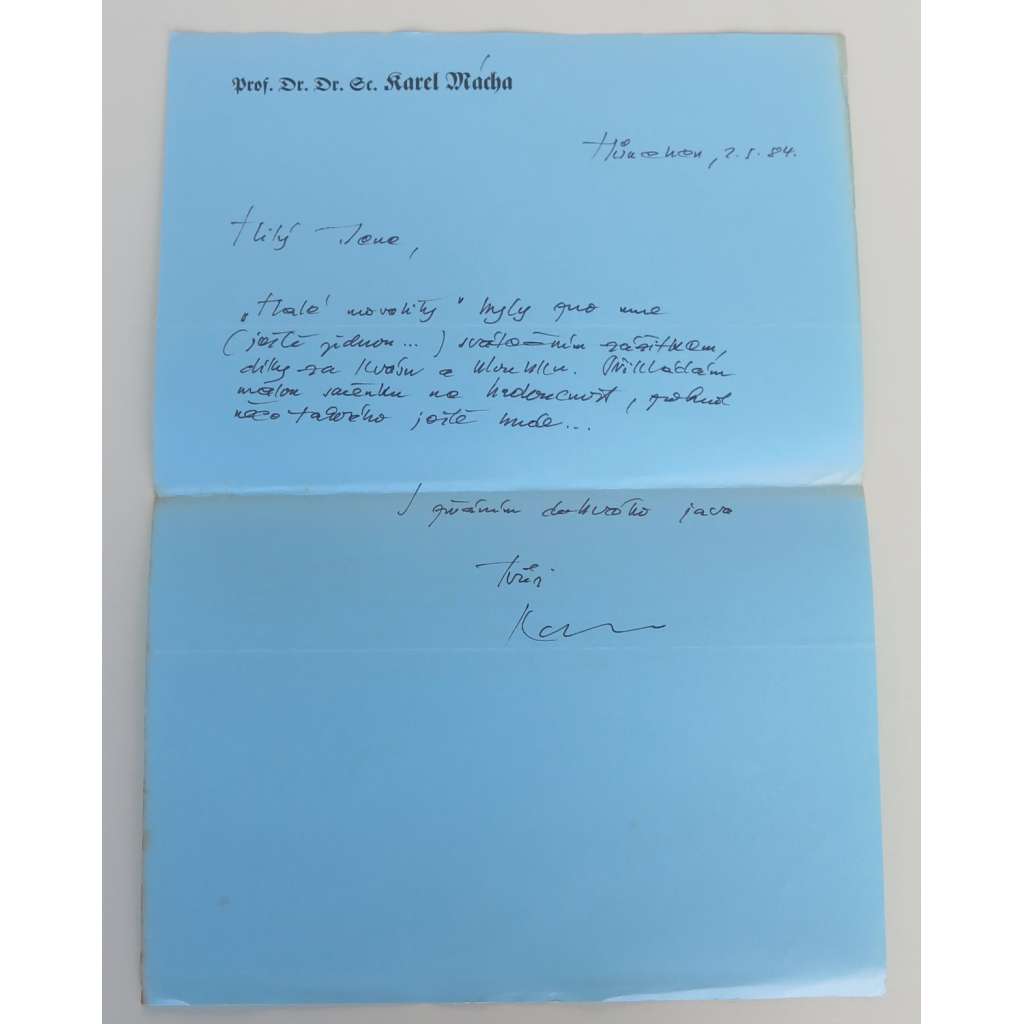 Prof. Dr. Dr. Sc. Karel Mácha
München, 2.5.84.
Milý Jene,
„Malé morality" byly pro mne
(ještě jednou...) svátečním zážitkem,
díky za krásu a hloubku. Přikládám
malou směnku na budoucnost, pokud
něco takového ještě bude...
S přáním dobrého jara
Tvůj
Karel